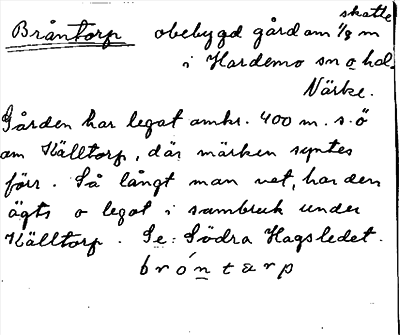 Bråntorp obebygd gård om 1/8 m skatte
i Hardemo sn o hd.
Närke.
Gården har legat omkr. 400 m. s.ö
om Källtorp, där märken syntes
förr. Så långt man vet, har den
ägts o legat i sambruk under
Källtorp. Se: Södra Hagsledet.
bróntarp